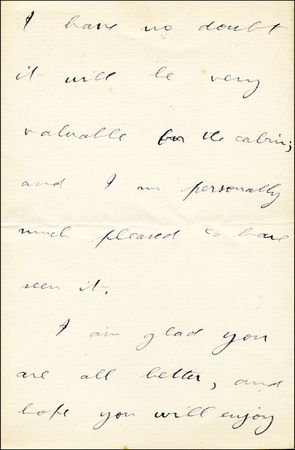 I have no doubt
it will be very
valuable for the cabin;
and I am personally
much pleased to have
seen it.
I am glad you
are all better, and
hope you will enjoy